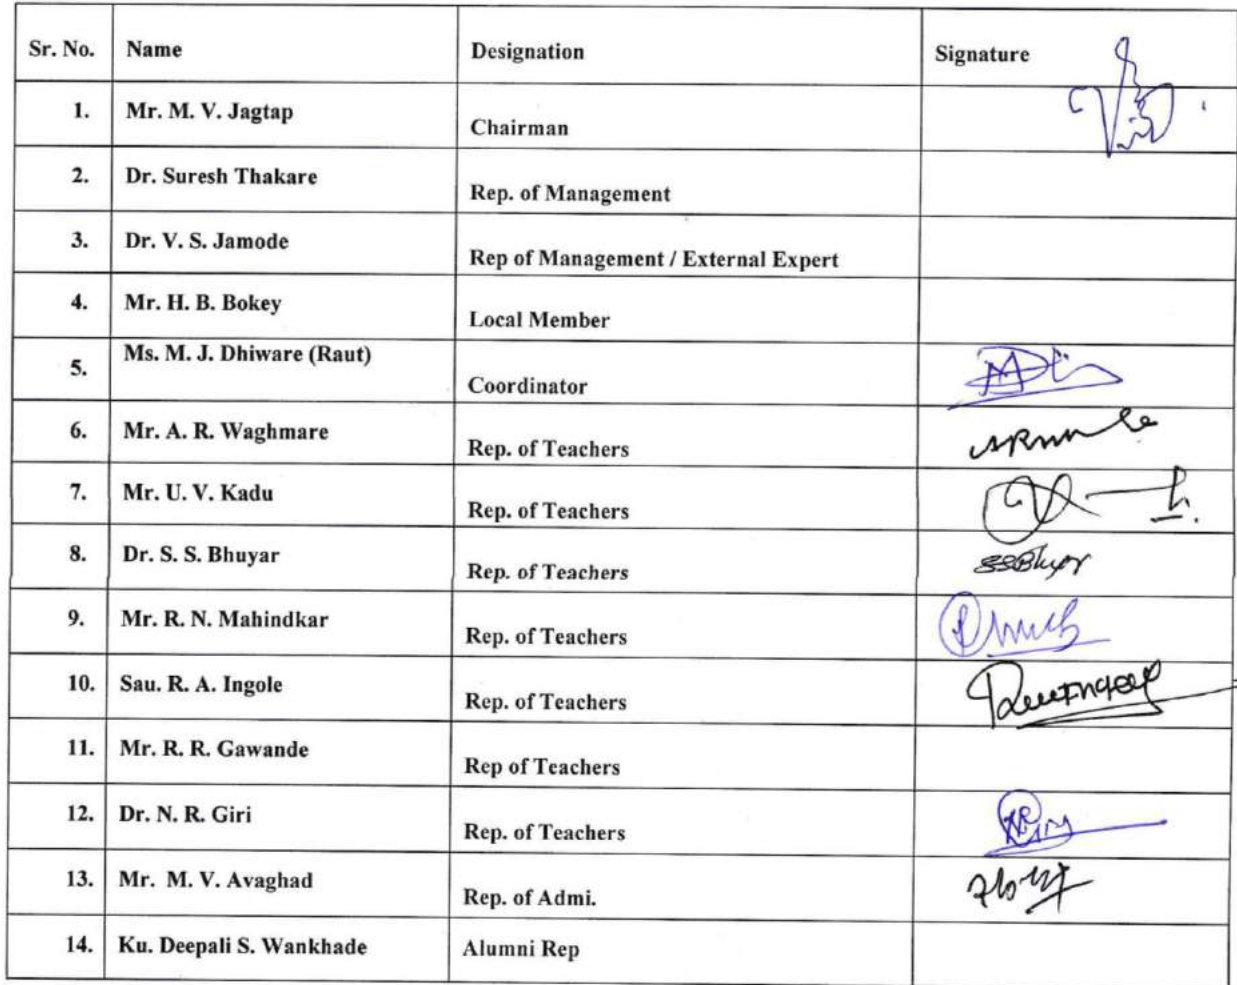 Sr. No. Name Designation Signature
1. Mr. M. V. Jagtap Chairman
2. Dr. Suresh Thakare Rep. of Management
3. Dr. V. S. Jamode Rep of Management / External Expert
4. Mr. H. B. Bokey Local Member
5. Ms. M. J. Dhiware (Raut) Coordinator
6. Mr. A. R. Waghmare Rep. of Teachers
7. Mr. U. V. Kadu Rep. of Teachers
8. Dr. S. S. Bhuyar Rep. of Teachers SSBhuyar
9. Mr. R. N. Mahindkar Rep. of Teachers
10. Sau. R. A. Ingole Rep. of Teachers
11. Mr. R. R. Gawande Rep of Teachers
12. Dr. N. R. Giri Rep. of Teachers
13. Mr. M. V. Avaghad Rep. of Admi.
14. Ku. Deepali S. Wankhade Alumni Rep